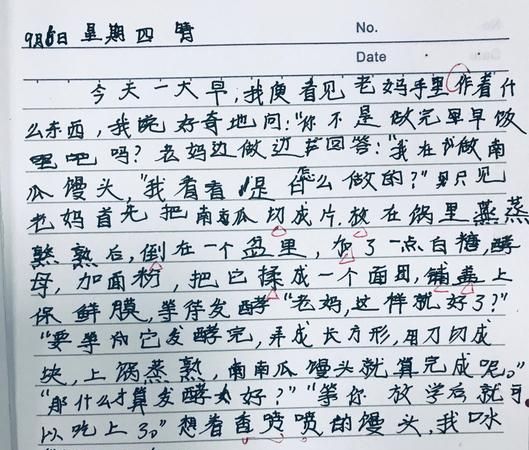 9月6日 星期四 晴
No.
Date
今天一大早,我便看见老妈手里作着什
么东西,我就好奇地问:"你不是做完早早饭
吗?老妈边做边回答:"我在做南
瓜馒头,"我看看是怎么做的?"只见
老妈首先把南瓜切成片,放在锅里蒸
熟后,倒在一个盆里,加了一点白糖,酵
母,加面粉,把它揉成一个面团,铺盖上
保鲜膜,等待发酵"老妈,这样就好了?"
"要等它发酵完,弄成长方形,用刀切成
块,上锅蒸熟,南瓜馒头就算完成呢。"
"那什么才算发酵好?""等你放学后就可
以吃上了。"想着香喷喷的馒头,我口水